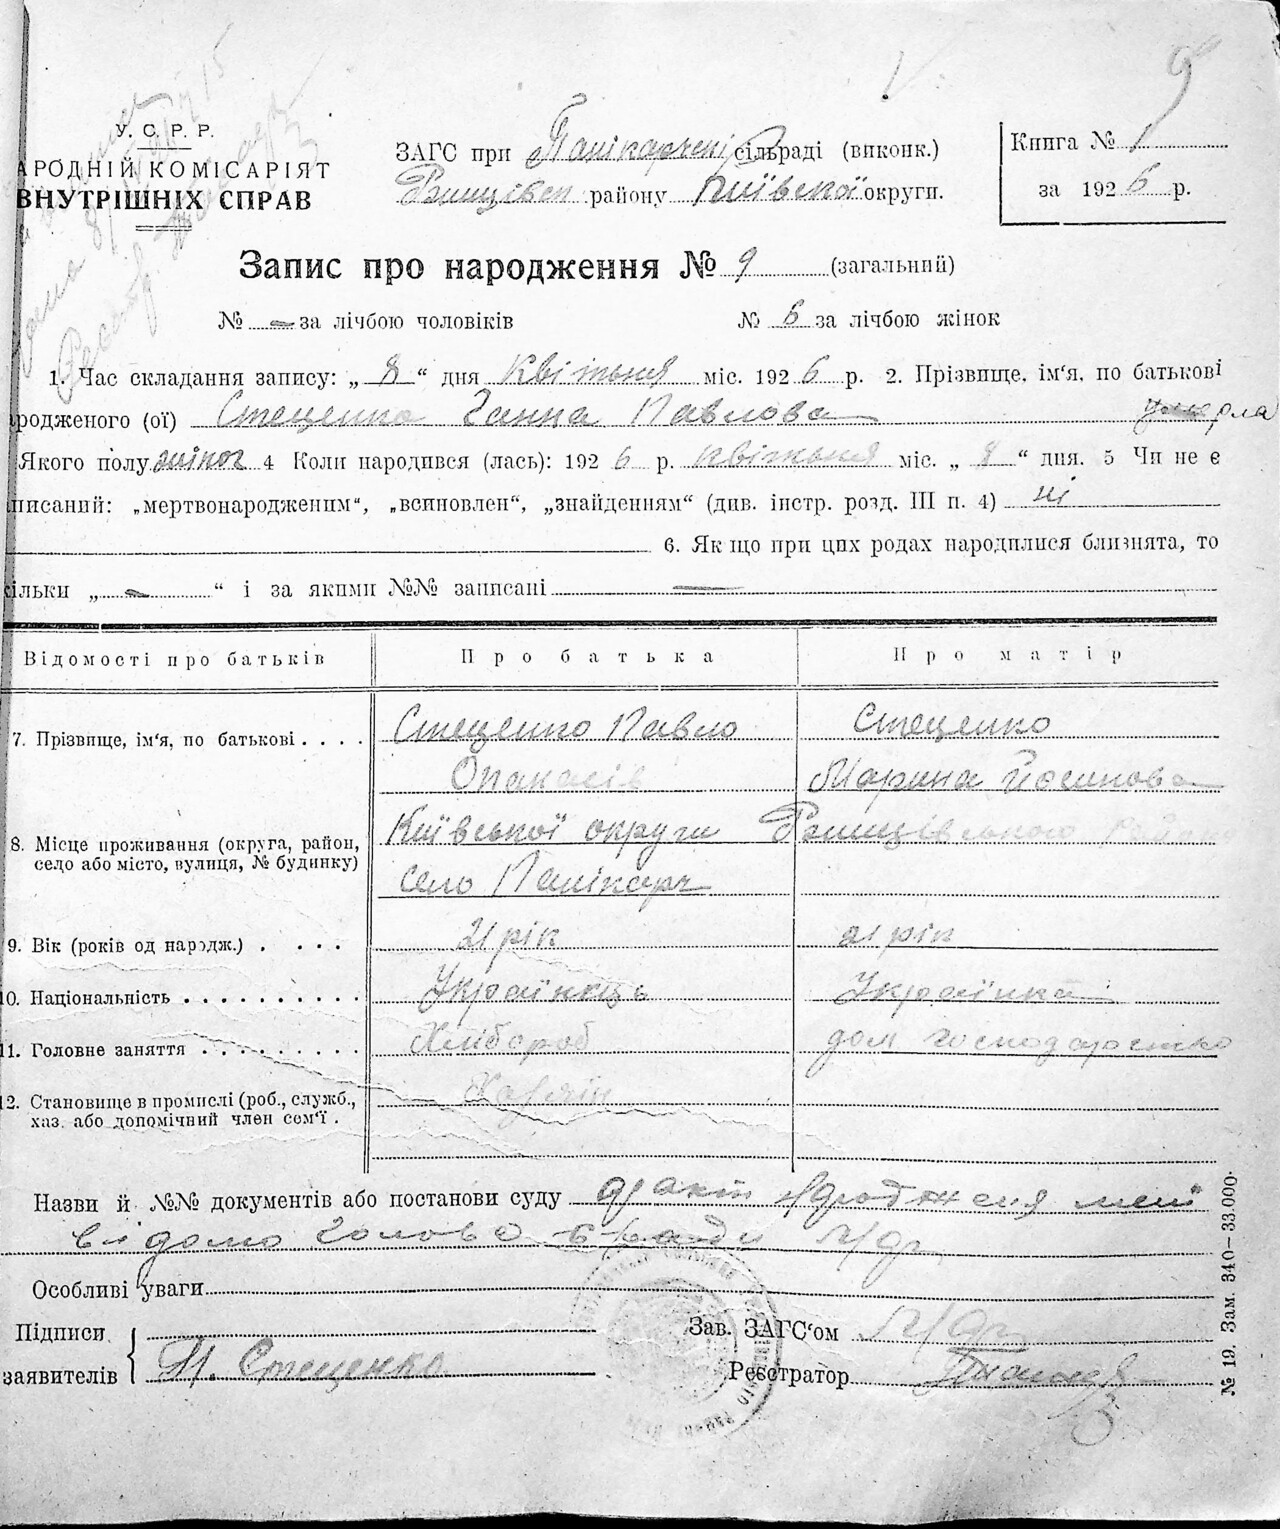 У. С. Р. Р.
АРОДНІЙ КОМІСАРІЯТ
ВНУТРІШНІХ СПРАВ
ЗАГС при Панікарчені сільраді (виконк.)
району Київскої округи.
Книга № 1
за 1926 р.
9
Запис про народження № 9 (загальний)
№ — за лічбою чоловіків № 6 за лічбою жінок
1. Час складання запису: „ 8 “ дня Квітьня міс. 1926 р. 2. Прізвище, ім'я, по батькові
родженого (ої) Стеценко Ганна Павлова
Якого полу жіног 4 Коли народився (лась): 1926 р. Квітьня міс. „ 8 “ дня. 5 Чи не є
писаний: „мертвонародженим“, „всиновлен“, „знайденням“ (див. інстр. розд. III п. 4) ні
6. Якщо при цих родах народилися близнята, то
ільки „ — “ і за якими №№ записані —
Відомості про батьків Про батька Про матір
7. Прізвище, ім'я, по батькові . . . . Стеценко Павло Стеценко
Опанасів Марина Йосипова
8. Місце проживання (округа, район, село або місто, вулиця, № будинку) Київської округи
село Панікарч
9. Вік (років од народж.) . . . . 21 рік 21 рік
10. Національність . . . . . . . . . . Українець Українка
11. Головне заняття . . . . . . . . . Хлібороб дом господарство
12. Становище в промислі (роб., служб., Хазяїн
хаз. або допомічний член сем'ї .
Назви й №№ документів або постанови суду факт народженя мені
відомо Голова с/ради
Особливі уваги
Підписи
заявителів П. Стеценко
Зав. ЗАГС'ом
Реєстратор
№ 19. Зам. 340—33.000.